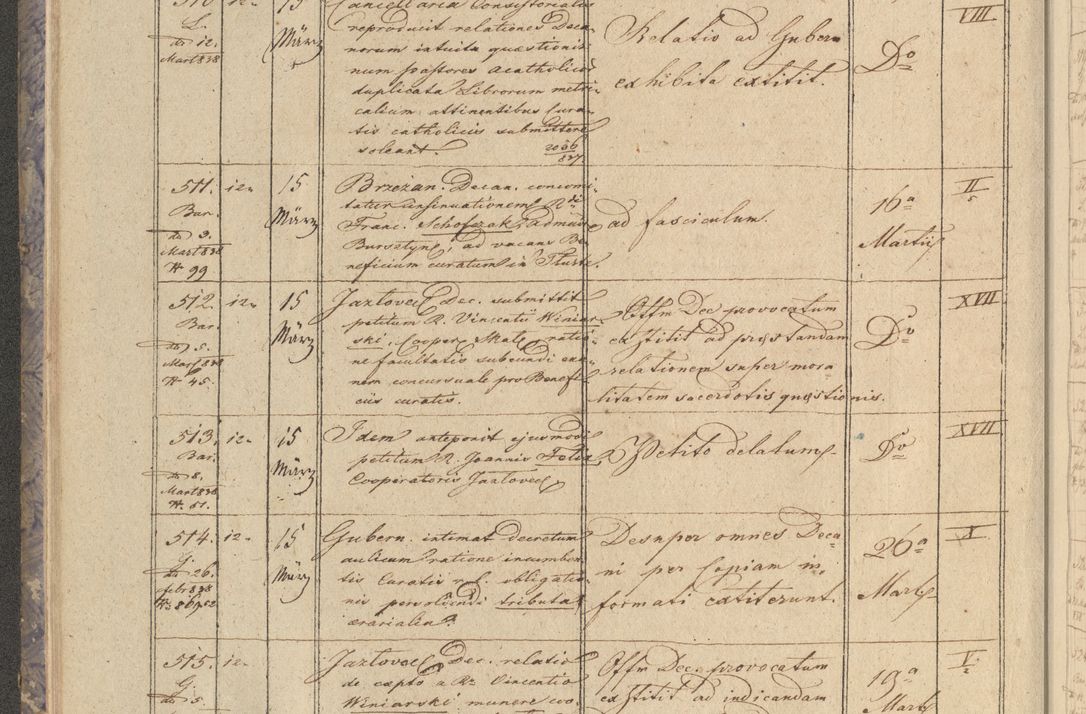 L.
dto 12.
Mart 838
15
März
Cancellaria Consistorialis
reproducit relationes Deca-
norum intuitu quaestionis
num pastores acatholicos
duplicata Librorum metri-
calium attinentibus Cura-
tis catholicis submittere
soleant.
2056
837.
Relatio ad Gubern
exhibita extitit.
Do
VIII
511.
Bar.
dto 9.
Mart 838
N 99
12
15
März
Brzezan. Decan. concomi-
tatur insinuationem Rdi
Franc. Schofczak, admin.
Bursztyn, ad vacans Be-
neficium curatum in Tluste.
ad fasciculum.
16a
Martii
II
5
512.
Bar.
dto 5.
Mart 838
N 45.
12
15
März
Jazlovec Dec. submittit
petitum R. Vincentii Winiar-
ski, Cooper. Skale, ratio-
ne facultatis subeundi exa-
men concursuale pro Benefi-
ciis curatis.
Offm Dec provocatum
extitit ad praestandam
relationem super mora
litatem sacerdotis quaestionis.
Do
XVIII
513.
Bar.
dto 8.
Mart 838
N. 51.
12
15
März
Idem anteponit ejusmodi
petitum R. Joannis
Cooperatoris Jazlovec
Petito delatum
Do
XVIII
514.
G.
dto 26.
Febr 838
12
15
März
Gubern. intimat decretum
aulicum ratione incumben-
tis Curatis r. l. obligatio-
nis persolvendi tributa
aerarialia.
Desuper omnes Deca
ni per Copiam in-
formati extiterunt.
26a
Mart
X
515.
G.
dto 5.
12
Jazlovec Dec. relatio
de capto a R. Vincentio
Winiarski munere coo-
Offm Dec. provocatum
extitit ad indicandam
19a
Mart
V
2